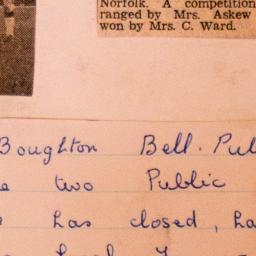 Norfolk. A competition
ranged by Mrs. Askew
won by Mrs. C. Ward.
Boughton Bell. Pul
two Public
has closed, ha